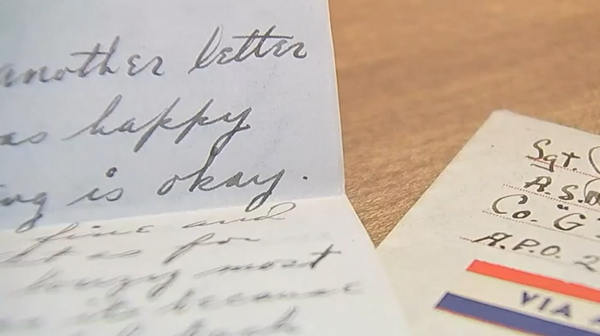 another letter
as happy
ng is okay.
fine and
as for
most
its because
Sgt
A.S.
Co. "G"
A.P.O. 2
VIA A